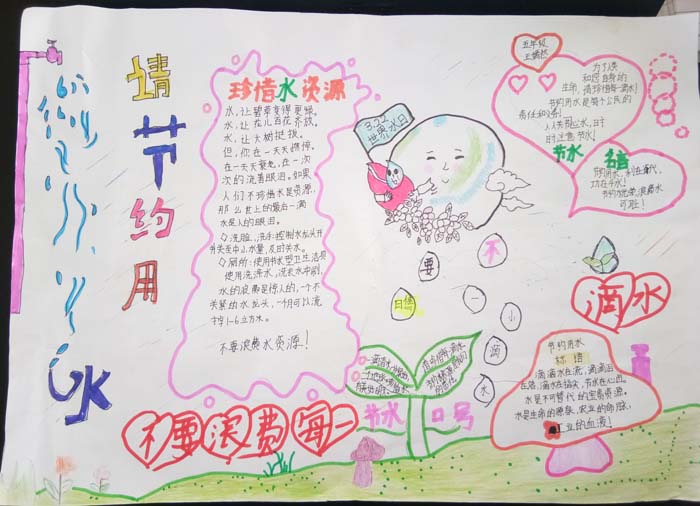 请节约用水
珍惜水资源
水,让碧草变得更绿。
水,让花儿百花齐放。
水,让大树挺拔。
但,你在一天天憔悴,
在一天天衰老,在一次
次的流着眼泪。如果
人们不珍惜水是资源,
那么世上的最后一滴
水是人的眼泪。
◇洗脸、洗手:控制水龙头开
关至中小水量,及时关水。
◇厕所:使用节水型卫生洁具
使用洗涤水,洗衣水冲刷,
水的浪费是惊人的,一个不
关紧的水龙头,一个月可以流
掉1-6立方米。
不要浪费水资源!
3.22
世界水日
五年级
为了人类
和您自身的
生命,请珍惜每一滴水!
节约用水是每个公民的
责任和义务!
人人关心水,时
时注意节水!
节水
名言
节约用水,利在当代,
功在千秋!
可耻!
不要
惜
一
小
滴
水
节水口号
节约用水
标语
滴滴水在流,滴滴活
水是不可替代的宝贵资源,
水是生命的源泉,农业的命脉,
工业的血液!
不要浪费每一
滴水